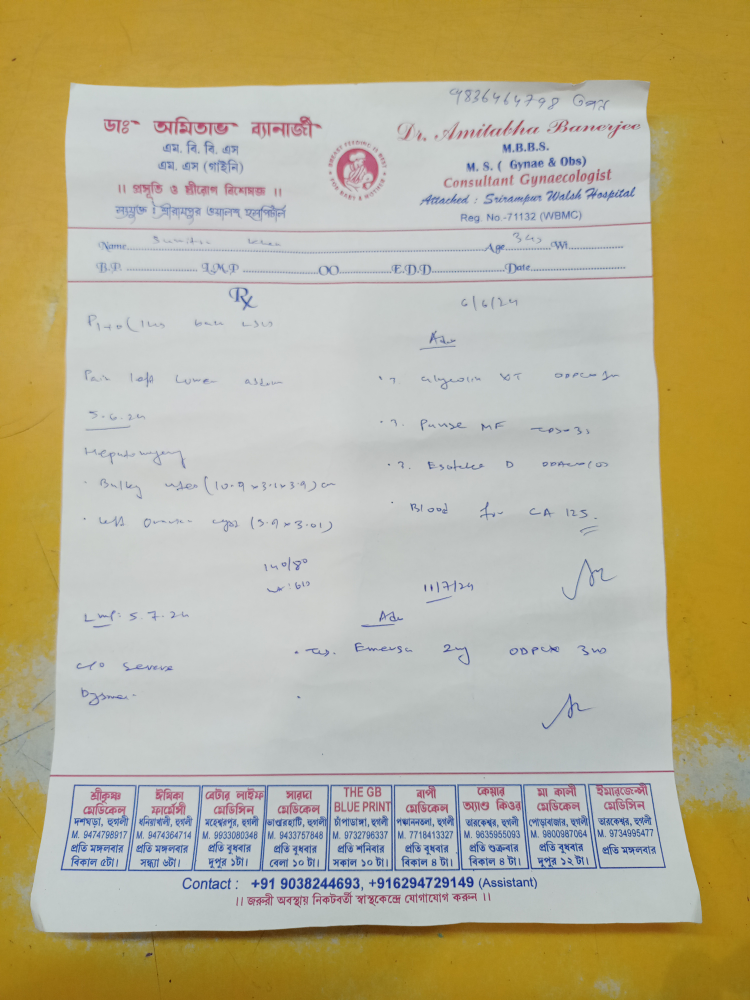 9836464798
ডাঃ অমিতাভ ব্যানার্জী
এম. বি. বি. এস
এম. এস (গাইনি)
।। প্রসূতি ও স্ত্রীরোগ বিশেষজ্ঞ ।।
সংযুক্ত : শ্রীরামপুর ওয়ালশ হসপিটাল
BREAST FEEDING IS BEST
FOR BABY & MOTHER
Dr. Amitabha Banerjee
M.B.B.S.
M. S. ( Gynae & Obs)
Consultant Gynaecologist
Attached : Srirampur Walsh Hospital
Reg. No.-71132 (WBMC)
Name Age Wt
B.P. L.M.P OO E.D.D Date
Rx
6/6/24
Adv
Pain left lower
5.6.24
Bulky (10.9 x 3.1 x 3.9) cm
Left ovarian cyst (5.9 x 3.01)
OD
MF
D
Blood for CA 125
140/80
11/7/24
LMP: 5.7.24
Adv
c/o severe
Tab. 2mg
শ্রীকৃষ্ণ মেডিকেল
দশঘড়া, হুগলী
M. 9474798917
প্রতি মঙ্গলবার
বিকাল ৫টা।
ঈমিকা ফার্মেসী
ধনিয়াখালী, হুগলী
M. 9474364714
প্রতি মঙ্গলবার
সন্ধ্যা ৬টা।
বেটার লাইফ মেডিসিন
মহেশ্বরপুর, হুগলী
M. 9933080348
প্রতি বুধবার
দুপুর ১টা।
সারদা মেডিকেল
ভাণ্ডারহাটি, হুগলী
M. 9433757848
প্রতি বুধবার
বেলা ১০ টা।
THE GB BLUE PRINT
চাঁপাডাঙ্গা, হুগলী
M. 9732796337
প্রতি শনিবার
সকাল ১০ টা।
বাপী মেডিকেল
পঞ্চাননতলা, হুগলী
M. 7718413327
প্রতি বুধবার
বিকাল ৪ টা।
কেয়ার অ্যাণ্ড কিওর
তারকেশ্বর, হুগলী
M. 9635955093
প্রতি শুক্রবার
বিকাল ৪ টা।
মা কালী মেডিকেল
পোড়াবাজার, হুগলী
M. 9800987064
প্রতি বুধবার
দুপুর ১২ টা।
ইমারজেন্সী মেডিসিন
তারকেশ্বর, হুগলী
M. 9734995477
প্রতি মঙ্গলবার
Contact : +91 9038244693, +916294729149 (Assistant)
।। জরুরী অবস্থায় নিকটবর্তী স্বাস্থ্যকেন্দ্রে যোগাযোগ করুন ।।